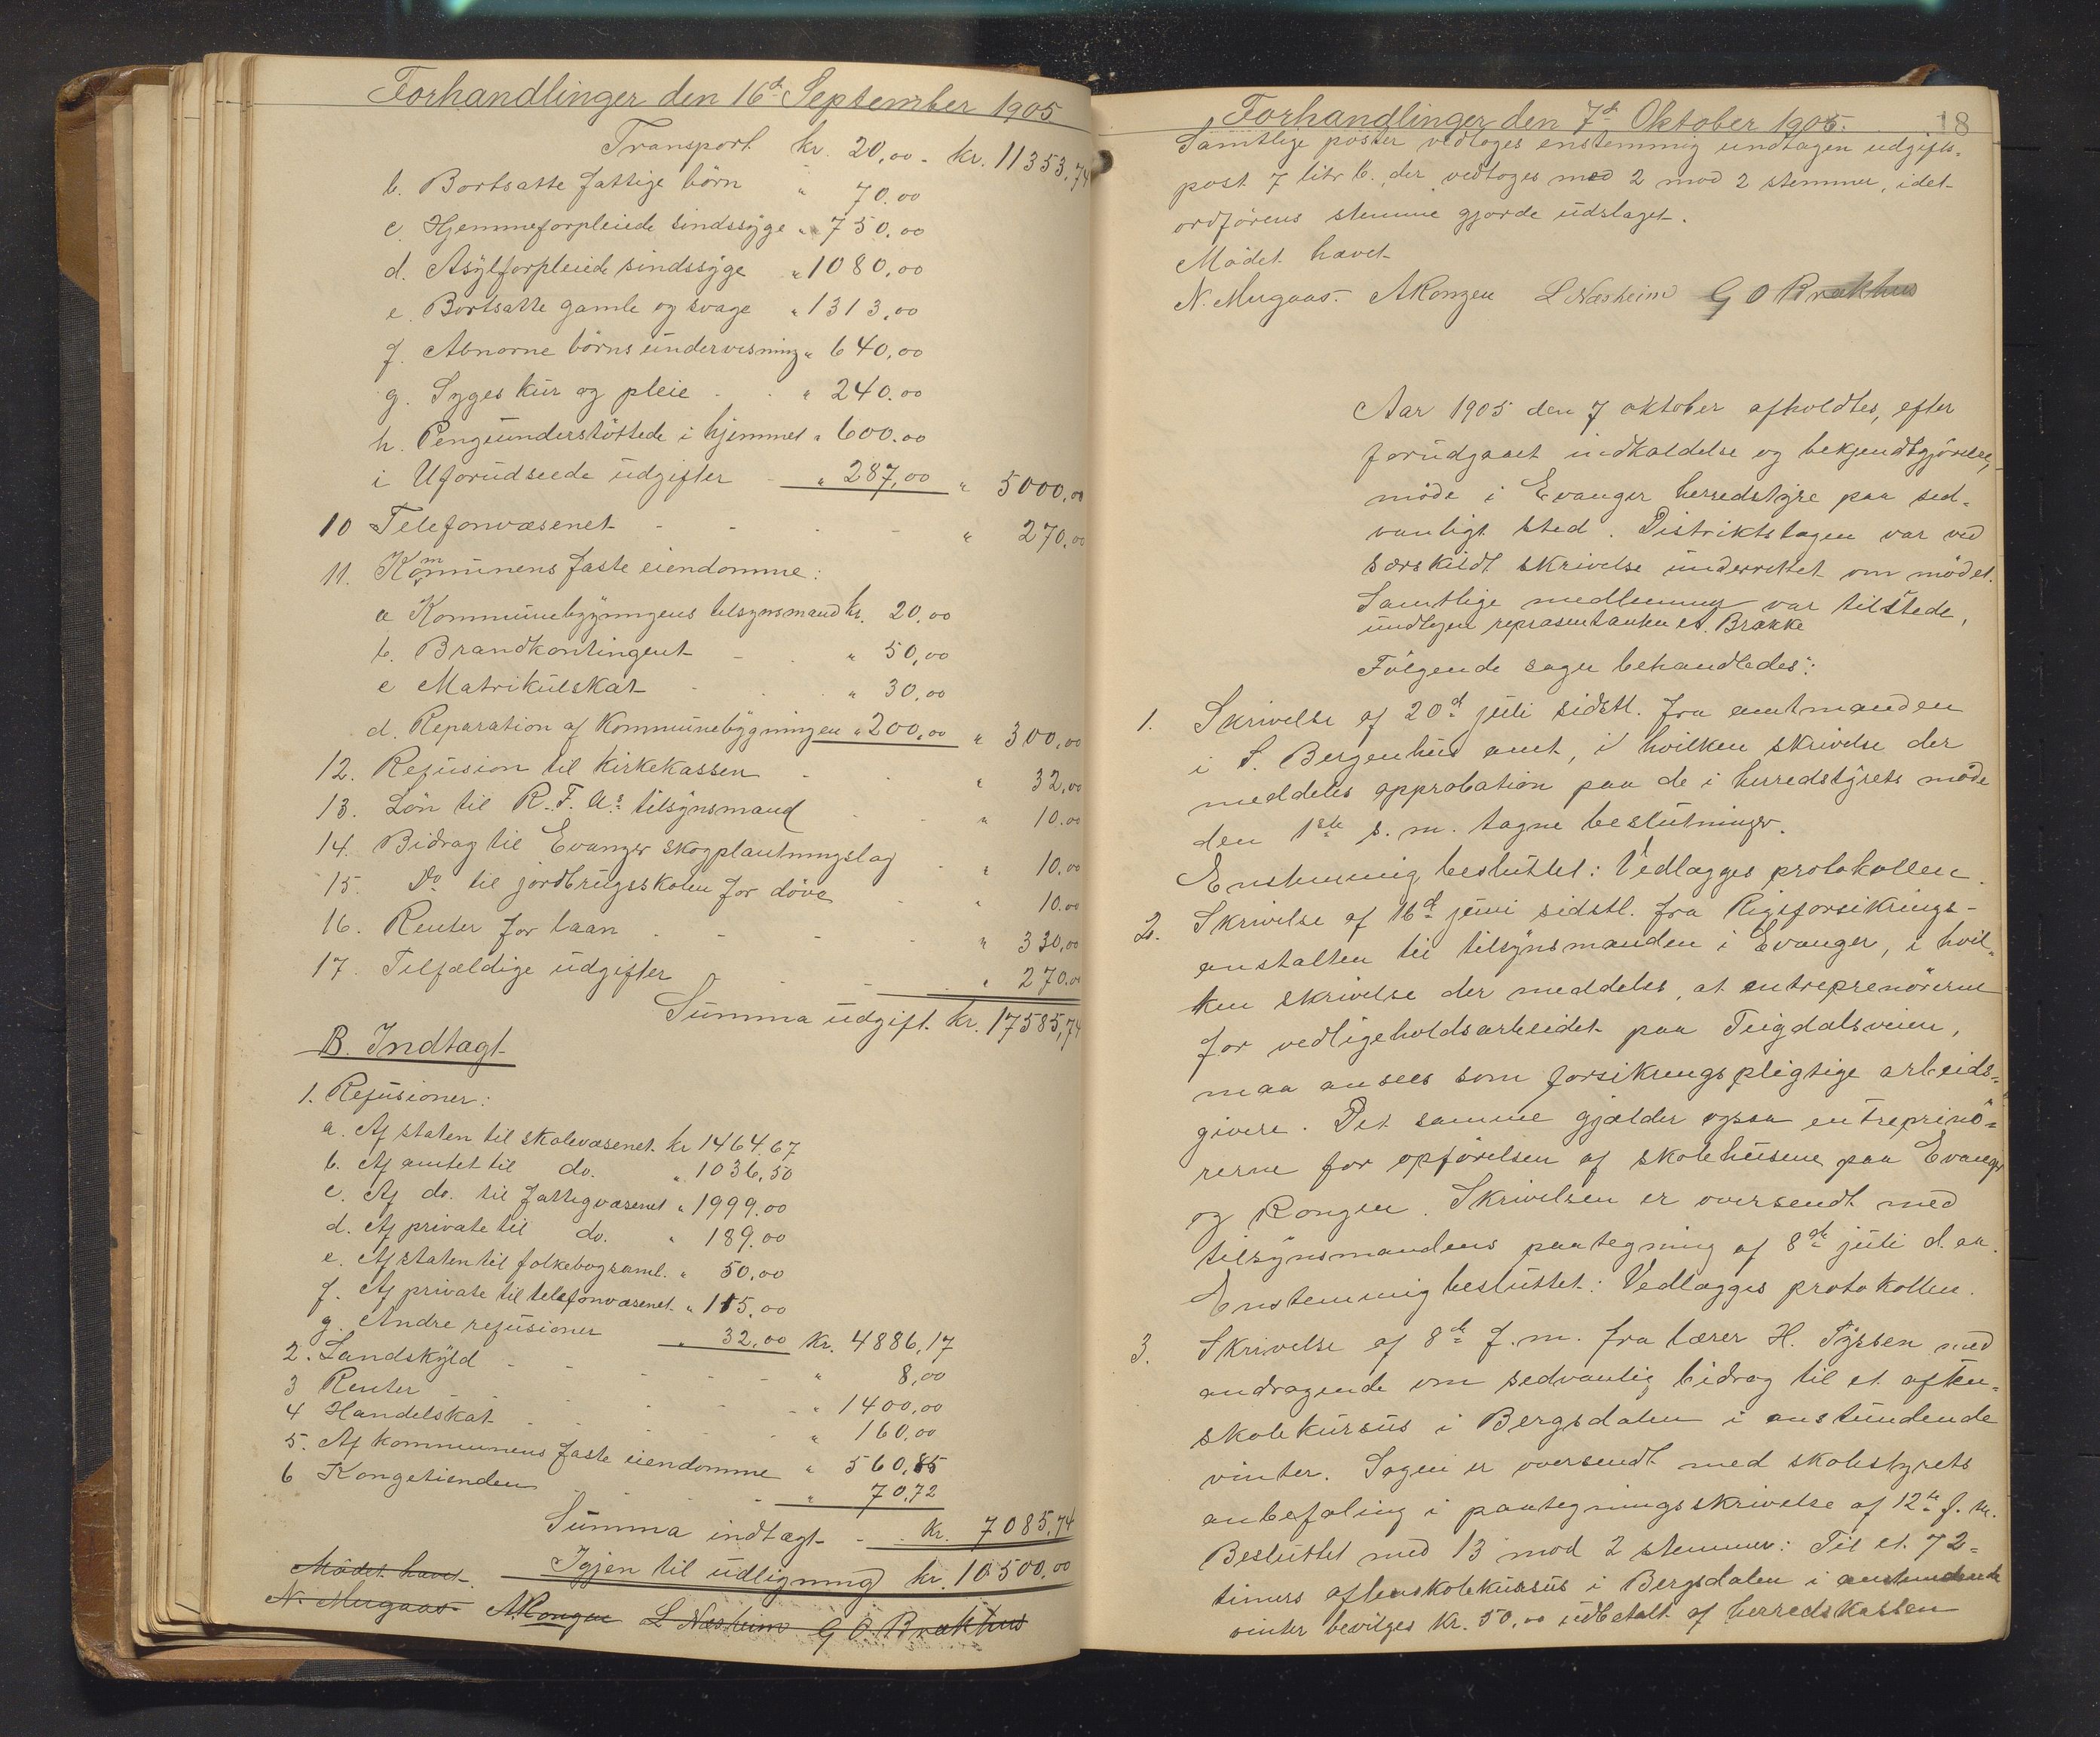 Forhandlinger den 16d September 1905
Transport kr. 20,00 - kr. 11353,74
b. Bortsatte fattige börn " 70.00
c. Hjemmeforpleiede sindssyge " 750,00
d. Asylforpleiede sindssyge " 1080,00
e. Bortsatte gamle og svage " 1313,00
f. Abnorme börns undervisning " 640,00
g. Syges kur og pleie - " 240.00
h. Pengeunderstöttede i hjemmet " 600.00
i Uforudseede udgifter - " 287,00 " 5000,00
10 Telefonvæsenet - - - - " 270,00
11. Kommunens faste eiendomme:
a Kommunebygningens tilsynsmand kr. 20,00
b. Brandkontingent - " 50,00
c Matrikulskat - " 30,00
d. Reparation af Kommunebygningen " 200,00 " 300,00
12. Refusion til kirkekassen - - " 32,00
13. Lön til R. F. As tilsynsmand - " 10.00
14. Bidrag til Evanger skogplantningslag - " 10,00
15. Do til jordbrugsskolen for döve - " 10.00
16. Renter for laan - - - - " 330,00
17. Tilfældige udgifter - - " 270.00
Summa udgift kr. 17585,74
B. Indtægt
1. Refusioner:
a. Af staten til skolevæsenet. kr 1464.67
b. Af amtet til do. " 1036,50
c. Af do. til fattigvæsenet " 1999.00
d. Af private til do. " 189.00
e. Af staten til folkebogsaml. " 50,00
f. Af private til telefonvæsenet " 115.00
g. Andre refusioner " 32,00 kr. 4886,17
2. Landskyld - - - - " 8,00
3 Renter - - - - " 1400,00
4 Handelskat - - - - " 160,00
5. Af kommunens faste eiendomme " 560,85
6 Kongetienden - - - " 70,72
Summa indtægt - - kr. 7085,74
Mödet hævet. Igjen til udligning kr. 10500,00
N. Mugaas. A Rongen L Næsheim G O Brakhus
Forhandlinger den 7d Oktober 1905. 18
Samtlige poster vedtoges enstemmig undtagen udgifts-
post 7 litr b. der vedtoges med 2 mod 2 stemmer, idet
ordförens stemme gjorde udslaget.
Mödet hævet
N. Mugaas. A Rongen L Næsheim G O Brakhus
Aar 1905 den 7 oktober afholdtes, efter
forudgaaet indkaldelse og bekjendtgjörelse,
möde i Evanger herredstyre paa sed-
vanligt sted. Distriktslægen var ved
særskildt skrivelse underrettet om mödet.
Samtlige medlemmer var tilstede,
undtagen repræsentanten Brække
Fölgende sager behandledes:
1. Skrivelse af 20d juli sidstl. fra amtmanden
i S. Bergenhus amt, i hvilken skrivelse der
meddeles approbation paa de i herredstyrets möde
den 1ste s. m. tagne beslutninger.
Enstemmig besluttet: Vedlægges protokollen.
2. Skrivelse af 16d juni sidstl. fra Rigsforsikrings-
anstalten til tilsynsmanden i Evanger, i hvil-
ken skrivelse der meddeles, at entreprenörerne
for vedligeholdsarbeidet paa Teigdalsveien,
maa ansees som forsikringspligtige arbeids-
givere. Det samme gjælder ogsaa entreprenö-
rerne for opförelsen af skolehusene paa Evanger
og Rongen. Skrivelsen er oversendt med
tilsynsmandens paategning af 8de juli d. aa.
Enstemmig besluttet: Vedlægges protokollen.
3. Skrivelse af 8de f. m. fra lærer H. Tyssen med
andragende om sedvanlig bidrag til et aften-
skolekursus i Bergsdalen i anstundende
vinter. Sagen er oversendt med skolestyrets
anbefaling i paategningsskrivelse af 12te f. m.
Besluttet med 13 mod 2 stemmer: Til et 72-
timers aftenskolekursus i Bergsdalen i anstundende
vinter bevilges kr. 50,00 udbetalt af herredskassen